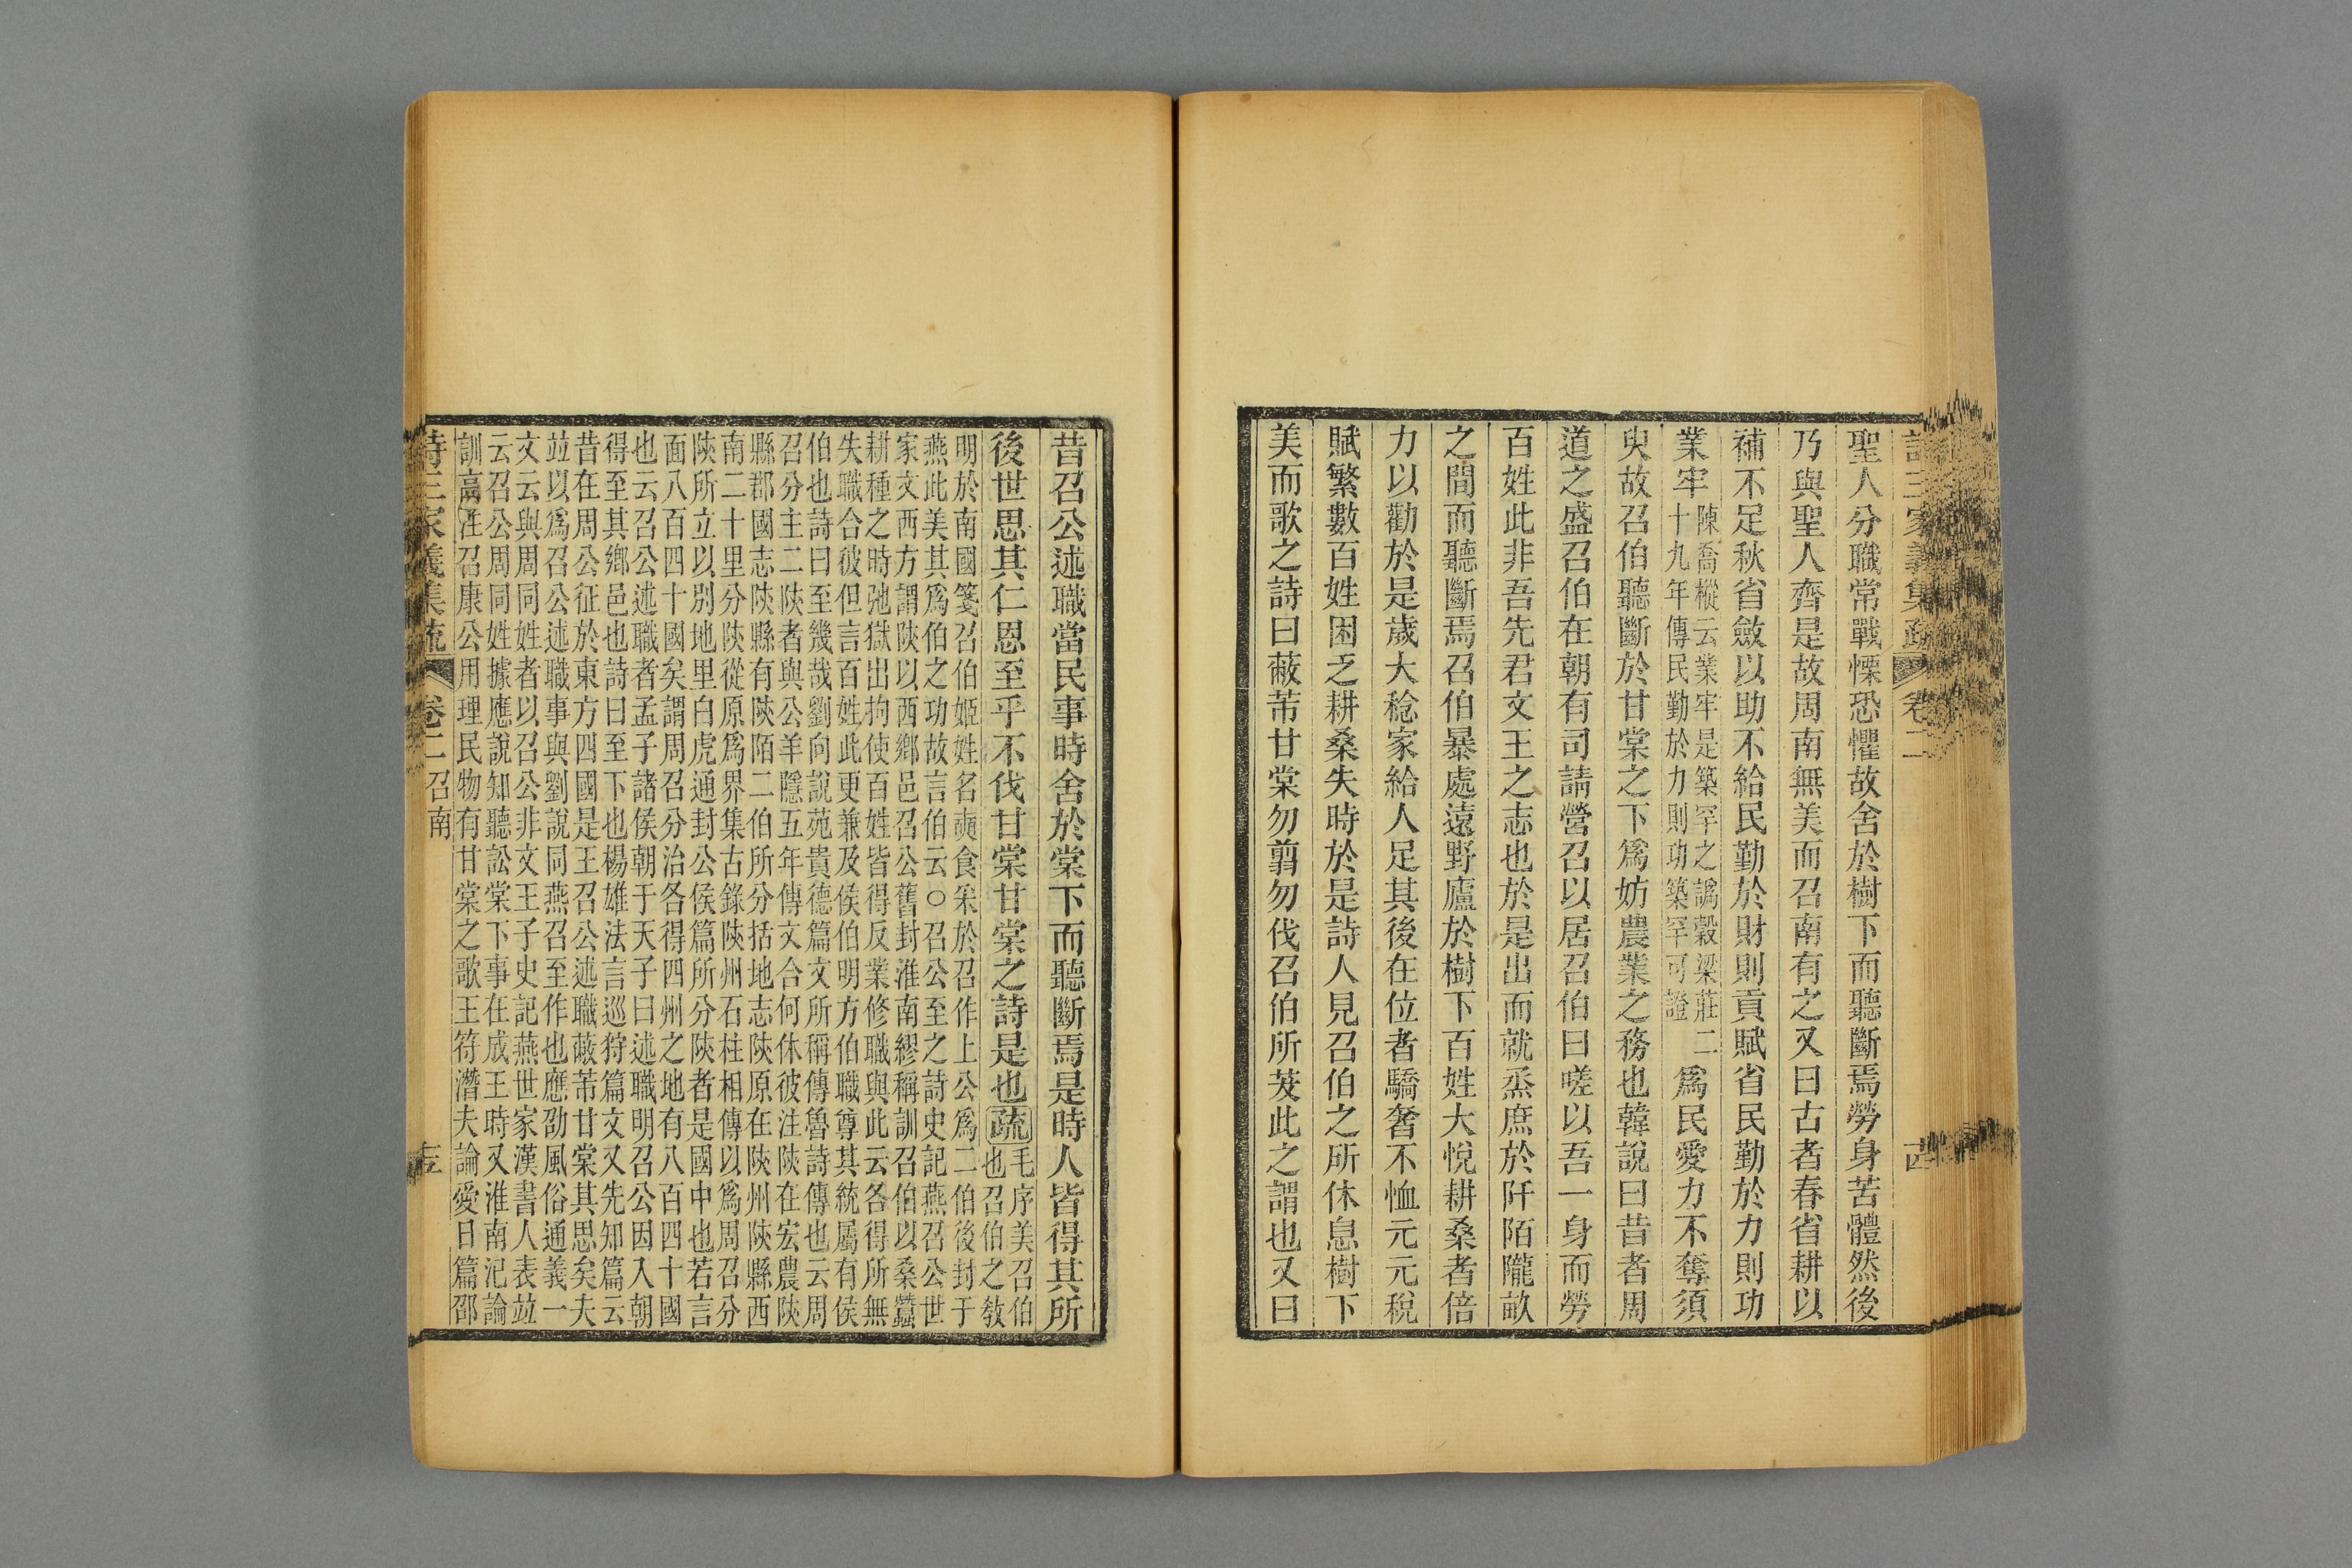 聖人分職常戰慄恐懼故舍於樹下而聽斷焉勞身苦體然後
乃與聖人齊是故周南無美而召南有之又曰古者春省耕以
補不足秋省斂以助不給民勤於財則貢賦省民勤於力則功
業牢
陳喬樅云業牢是築罕之譌穀梁莊二
十九年傳民勤於力則功築罕可證
爲民愛力不奪須
臾故召伯聽斷於甘棠之下爲妨農業之務也韓說曰昔者周
道之盛召伯在朝有司請營召以居召伯曰嗟以吾一身而勞
百姓此非吾先君文王之志也於是出而就烝庶於阡陌隴畝
之間而聽斷焉召伯暴處遠野廬於樹下百姓大悅耕桑者倍
力以勸於是歲大稔家給人足其後在位者驕奢不恤元元稅
賦繁數百姓困乏耕桑失時於是詩人見召伯之所休息樹下
美而歌之詩曰蔽芾甘棠勿翦勿伐召伯所茇此之謂也又曰
昔召公述職當民事時舍於棠下而聽斷焉是時人皆得其所
後世思其仁恩至乎不伐甘棠甘棠之詩是也疏
毛序美召伯
也召伯之教
明於南國箋召伯姬姓名奭食采於召作上公爲二伯後封于
燕此美其爲伯之功故言伯云○召公至之詩史記燕召公世
家文西方謂陝以西鄉邑召公舊封淮南繆稱訓召伯以桑蠶
耕種之時弛獄出拘使百姓皆得反業修職與此云各得所無
失職合彼但言百姓此更兼及侯伯明方伯職尊其統屬有侯
伯也詩曰至幾哉劉向說苑貴德篇文所稱傳魯詩傳也云周
召分主二陝者與公羊隱五年傳文合何休彼注陝在宏農陝
縣郡國志陝縣有陝陌二伯所分括地志陝原在陝州陝縣西
南二十里分陝從原爲界集古錄陝州石柱相傳以爲周召分
陝所立以別地里白虎通封公侯篇所分陝者是國中也若言
面八百四十國矣謂周召分治各得四州之地有八百四十國
也云召公述職者孟子諸侯朝于天子曰述職明召公因入朝
得至其鄉邑也詩曰至下也楊雄法言巡狩篇文又先知篇云
昔在周公征於東方四國是王召公述職蔽芾甘棠其思矣夫
竝以爲召公述職事與劉說同燕召至作也應劭風俗通義一
文云與周同姓者以召公非文王子史記燕世家漢書人表竝
云召公周同姓據應說知聽訟棠下事在成王時又淮南氾論
訓高注召康公用理民物有甘棠之歌王符潛夫論愛日篇邵
詩三家義集疏 卷二召南